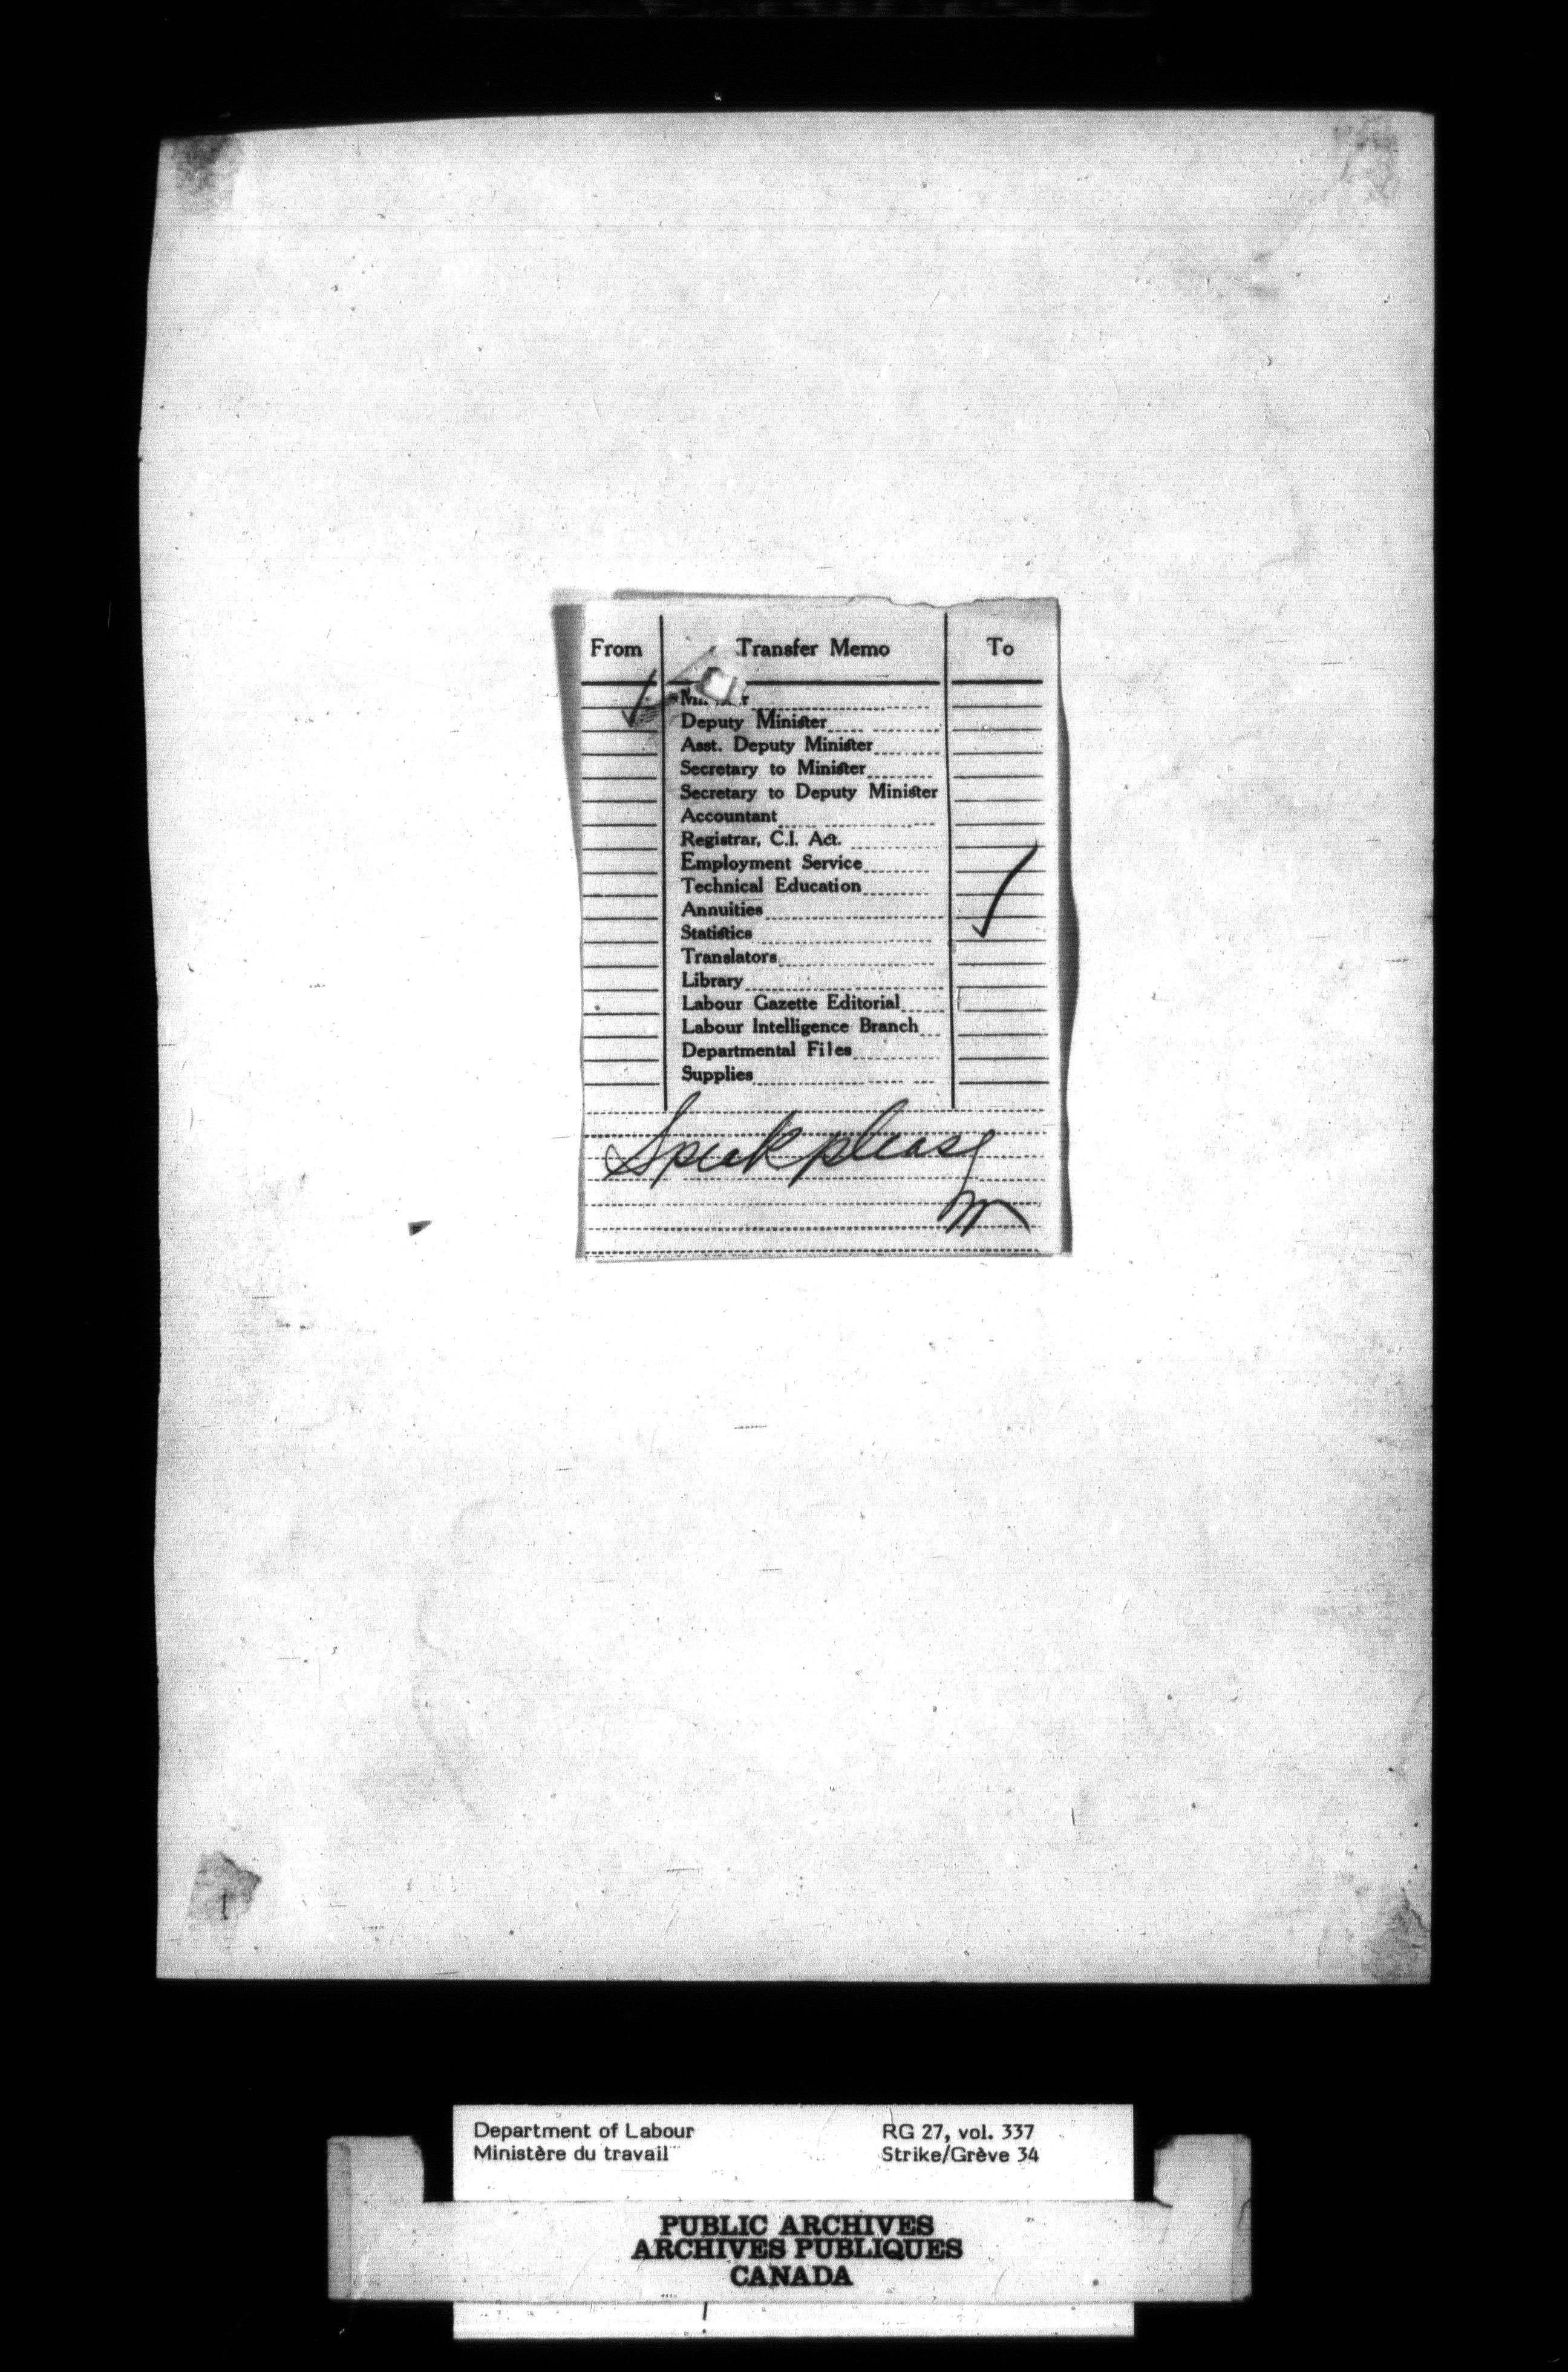 From Transfer Memo To
Deputy Minister
Asst. Deputy Minister
Secretary to Minister
Secretary to Deputy Minister
Accountant
Registrar, C.I. Act.
Employment Service
Technical Education
Annuities
Statistics
Translators
Library
Labour Gazette Editorial
Labour Intelligence Branch
Departmental Files
Supplies
Speak please
Department of Labour RG 27, vol. 337
Ministère du travail Strike/Grève 34
PUBLIC ARCHIVES
ARCHIVES PUBLIQUES
CANADA